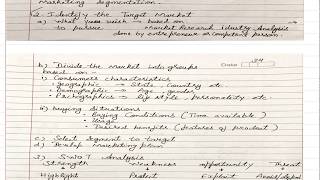 marketing segmentation.
2. Identify the Target Market
a) what your wish - based on -
to pursue Market Research, Idustry Analysis
done by entrepreneur or company person.
Date : 24
b) Divide the market into groups
based on -
1) Consumer characteristics
• geographic → State, Country etc
• Demographic → Age, gender
• Psychographics → life style, personality etc
2) Buying Situations
- Buying Conditions (Time available)
- Usage
- Desired benefits (features of product)
c) Select Segment to target
d) Develop marketing plan
3) S-W-O-T Analysis
Strength Weakness opportunity Threat
Highlight Protect Exploit Avoid/defend